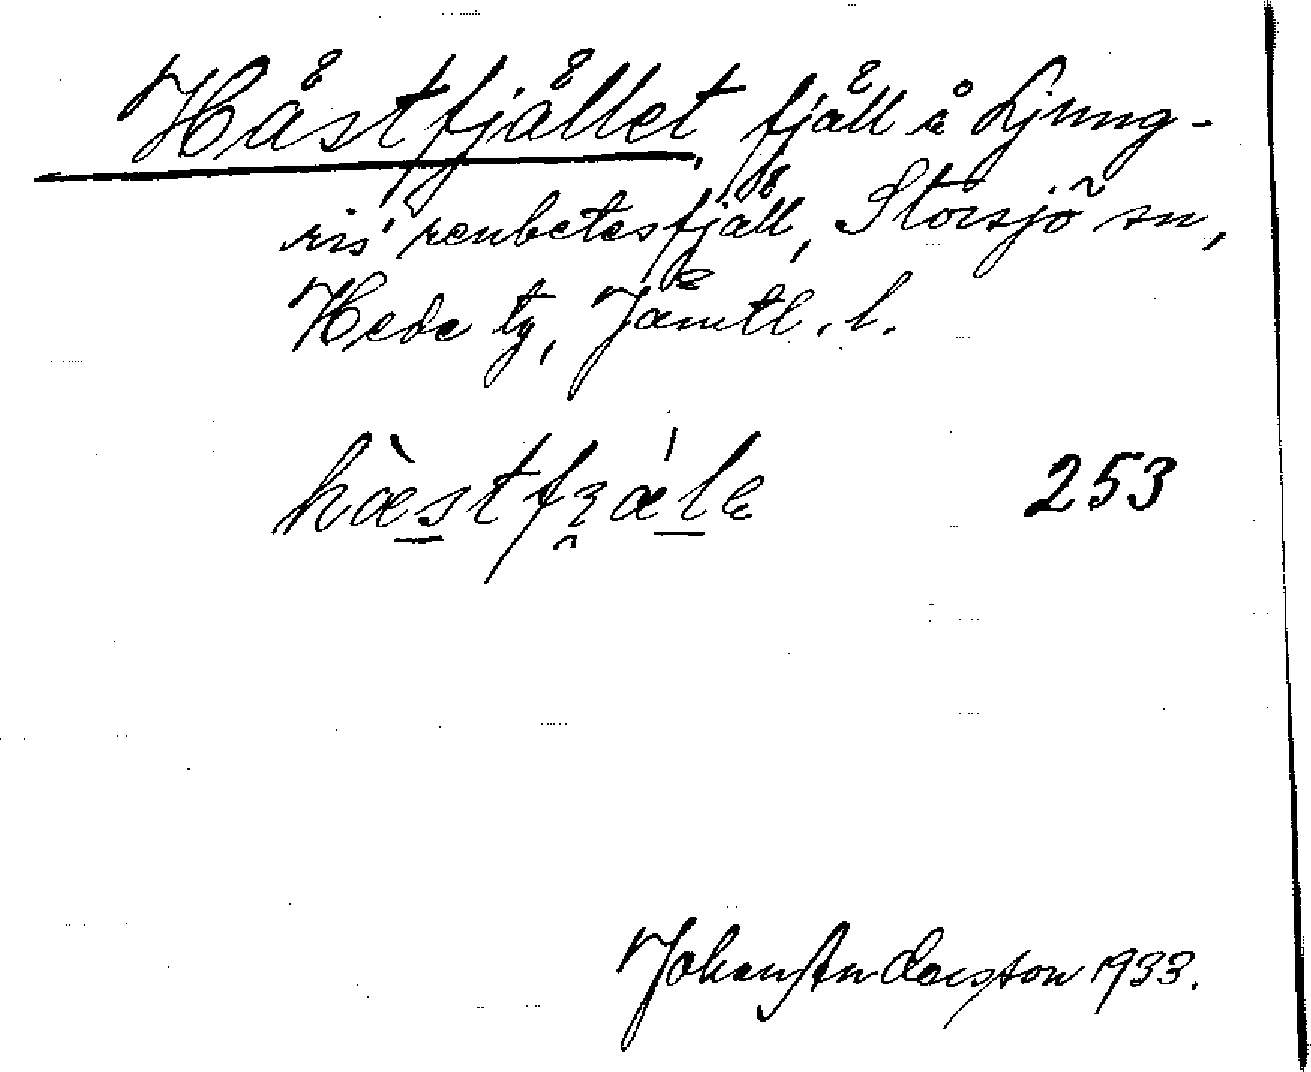 Hästfjället, fjäll å Ljung-
ris' renbetesfjäll, Storsjö sn,
Hede tg, Jämtl. l.
hàstfɿála
253
Johan Andersson 1933.